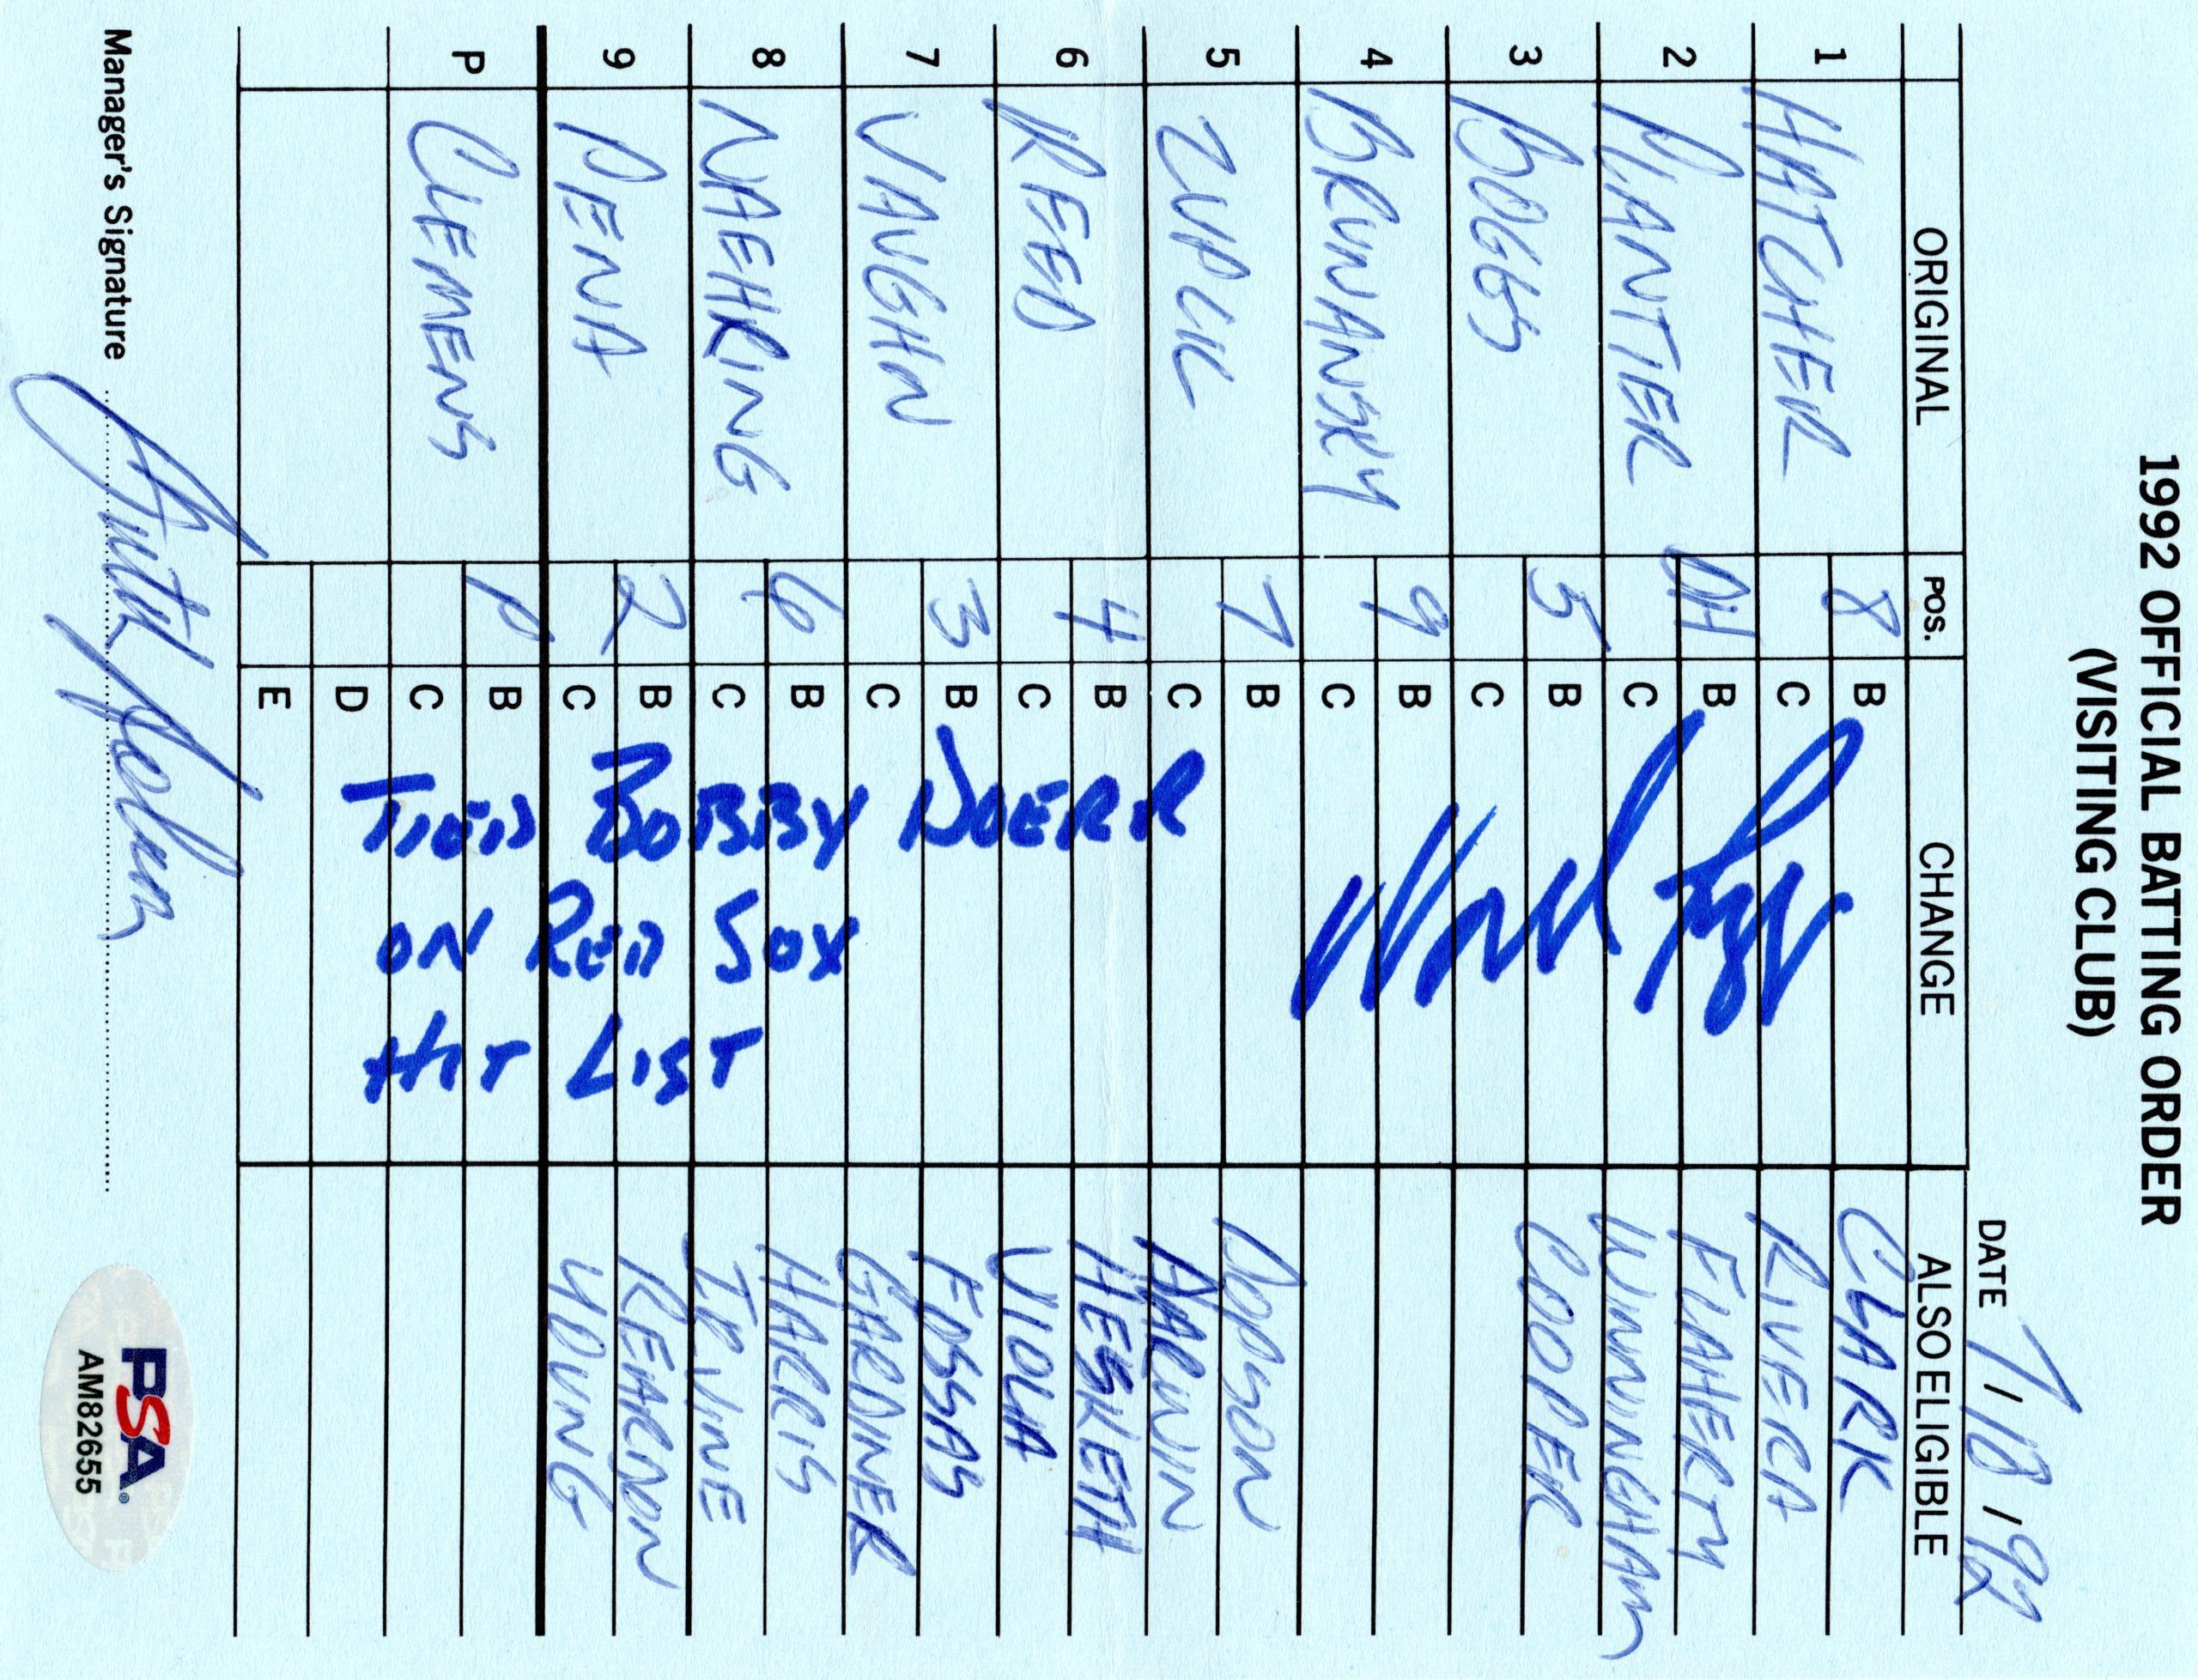 1992 OFFICIAL BATTING ORDER
(VISITING CLUB)
DATE 7/18/92
ORIGINAL POS. CHANGE ALSO ELIGIBLE
1 HATCHER 8 B CLARK
C RIVERA
2 PLANTIER DH B FLAHERTY
C WINNINGHAM
3 BOGGS 5 B COOPER
C
4 BRUNANSKY 9 B
C
5 ZUPCIC 7 B DOPSON
C DARWIN
6 REED 4 B HESKETH
C VIOLA
7 VAUGHN 3 B FOSSAS
C GARDINER
8 NAEHRING 6 B HARRIS
C IRVINE
9 PENA 2 B REARDON
C YOUNG
P CLEMENS P B
C
D
E
TIED BOBBY DOERR
ON RED SOX
HIT LIST
Manager's Signature
PSA
AM82655